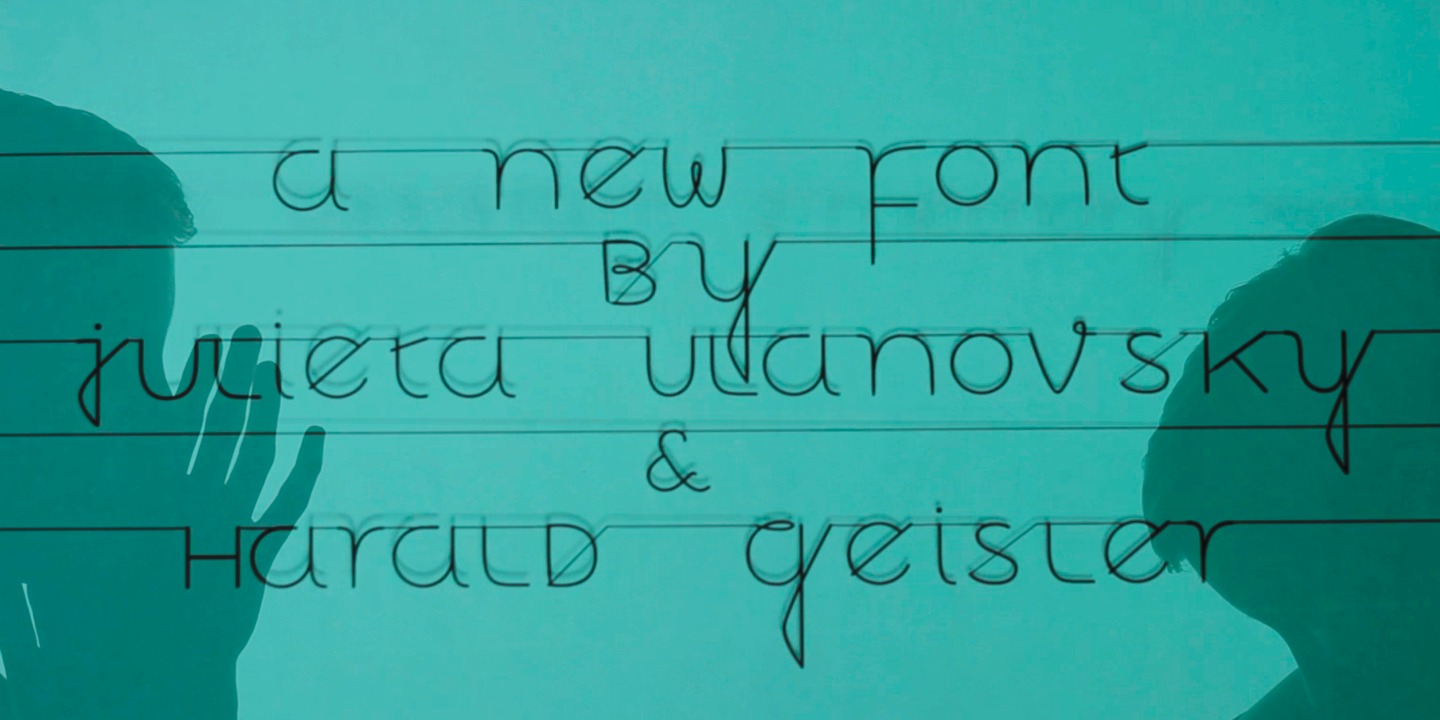 a new font
By
julieta ulanovsky
&
Harald geisler